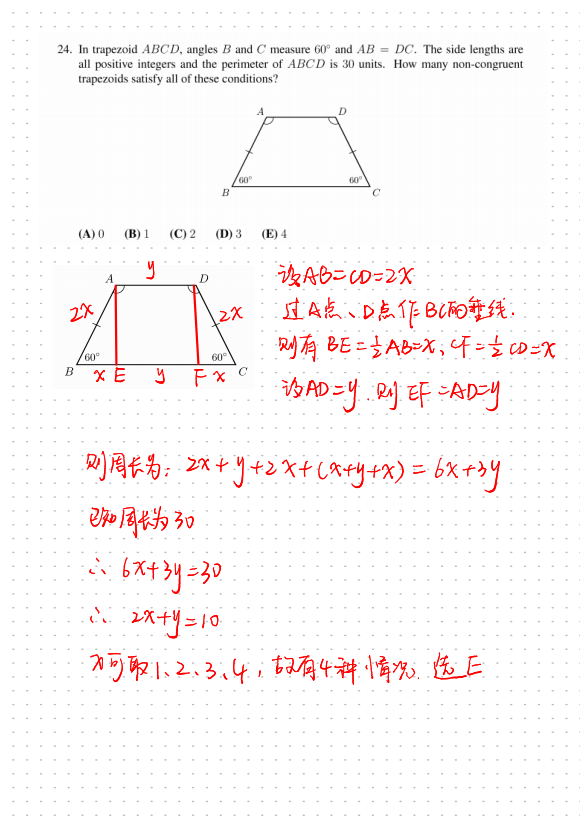 24. In trapezoid ABCD, angles B and C measure 60° and AB = DC. The side lengths are
all positive integers and the perimeter of ABCD is 30 units. How many non-congruent
trapezoids satisfy all of these conditions?
A D
60° 60°
B C
(A) 0 (B) 1 (C) 2 (D) 3 (E) 4
y
A D
2x 2x
60° 60°
B x E y F x C
设AB=CD=2x
过A点、D点作BC的垂线.
则有BE=½AB=x、CF=½CD=x
设AD=y.则EF=AD=y
则周长为: 2x+y+2x+(x+y+x)=6x+3y
已知周长为30
∴ 6x+3y=30
∴ 2x+y=10
x可取1、2、3、4,故有4种情况.选E